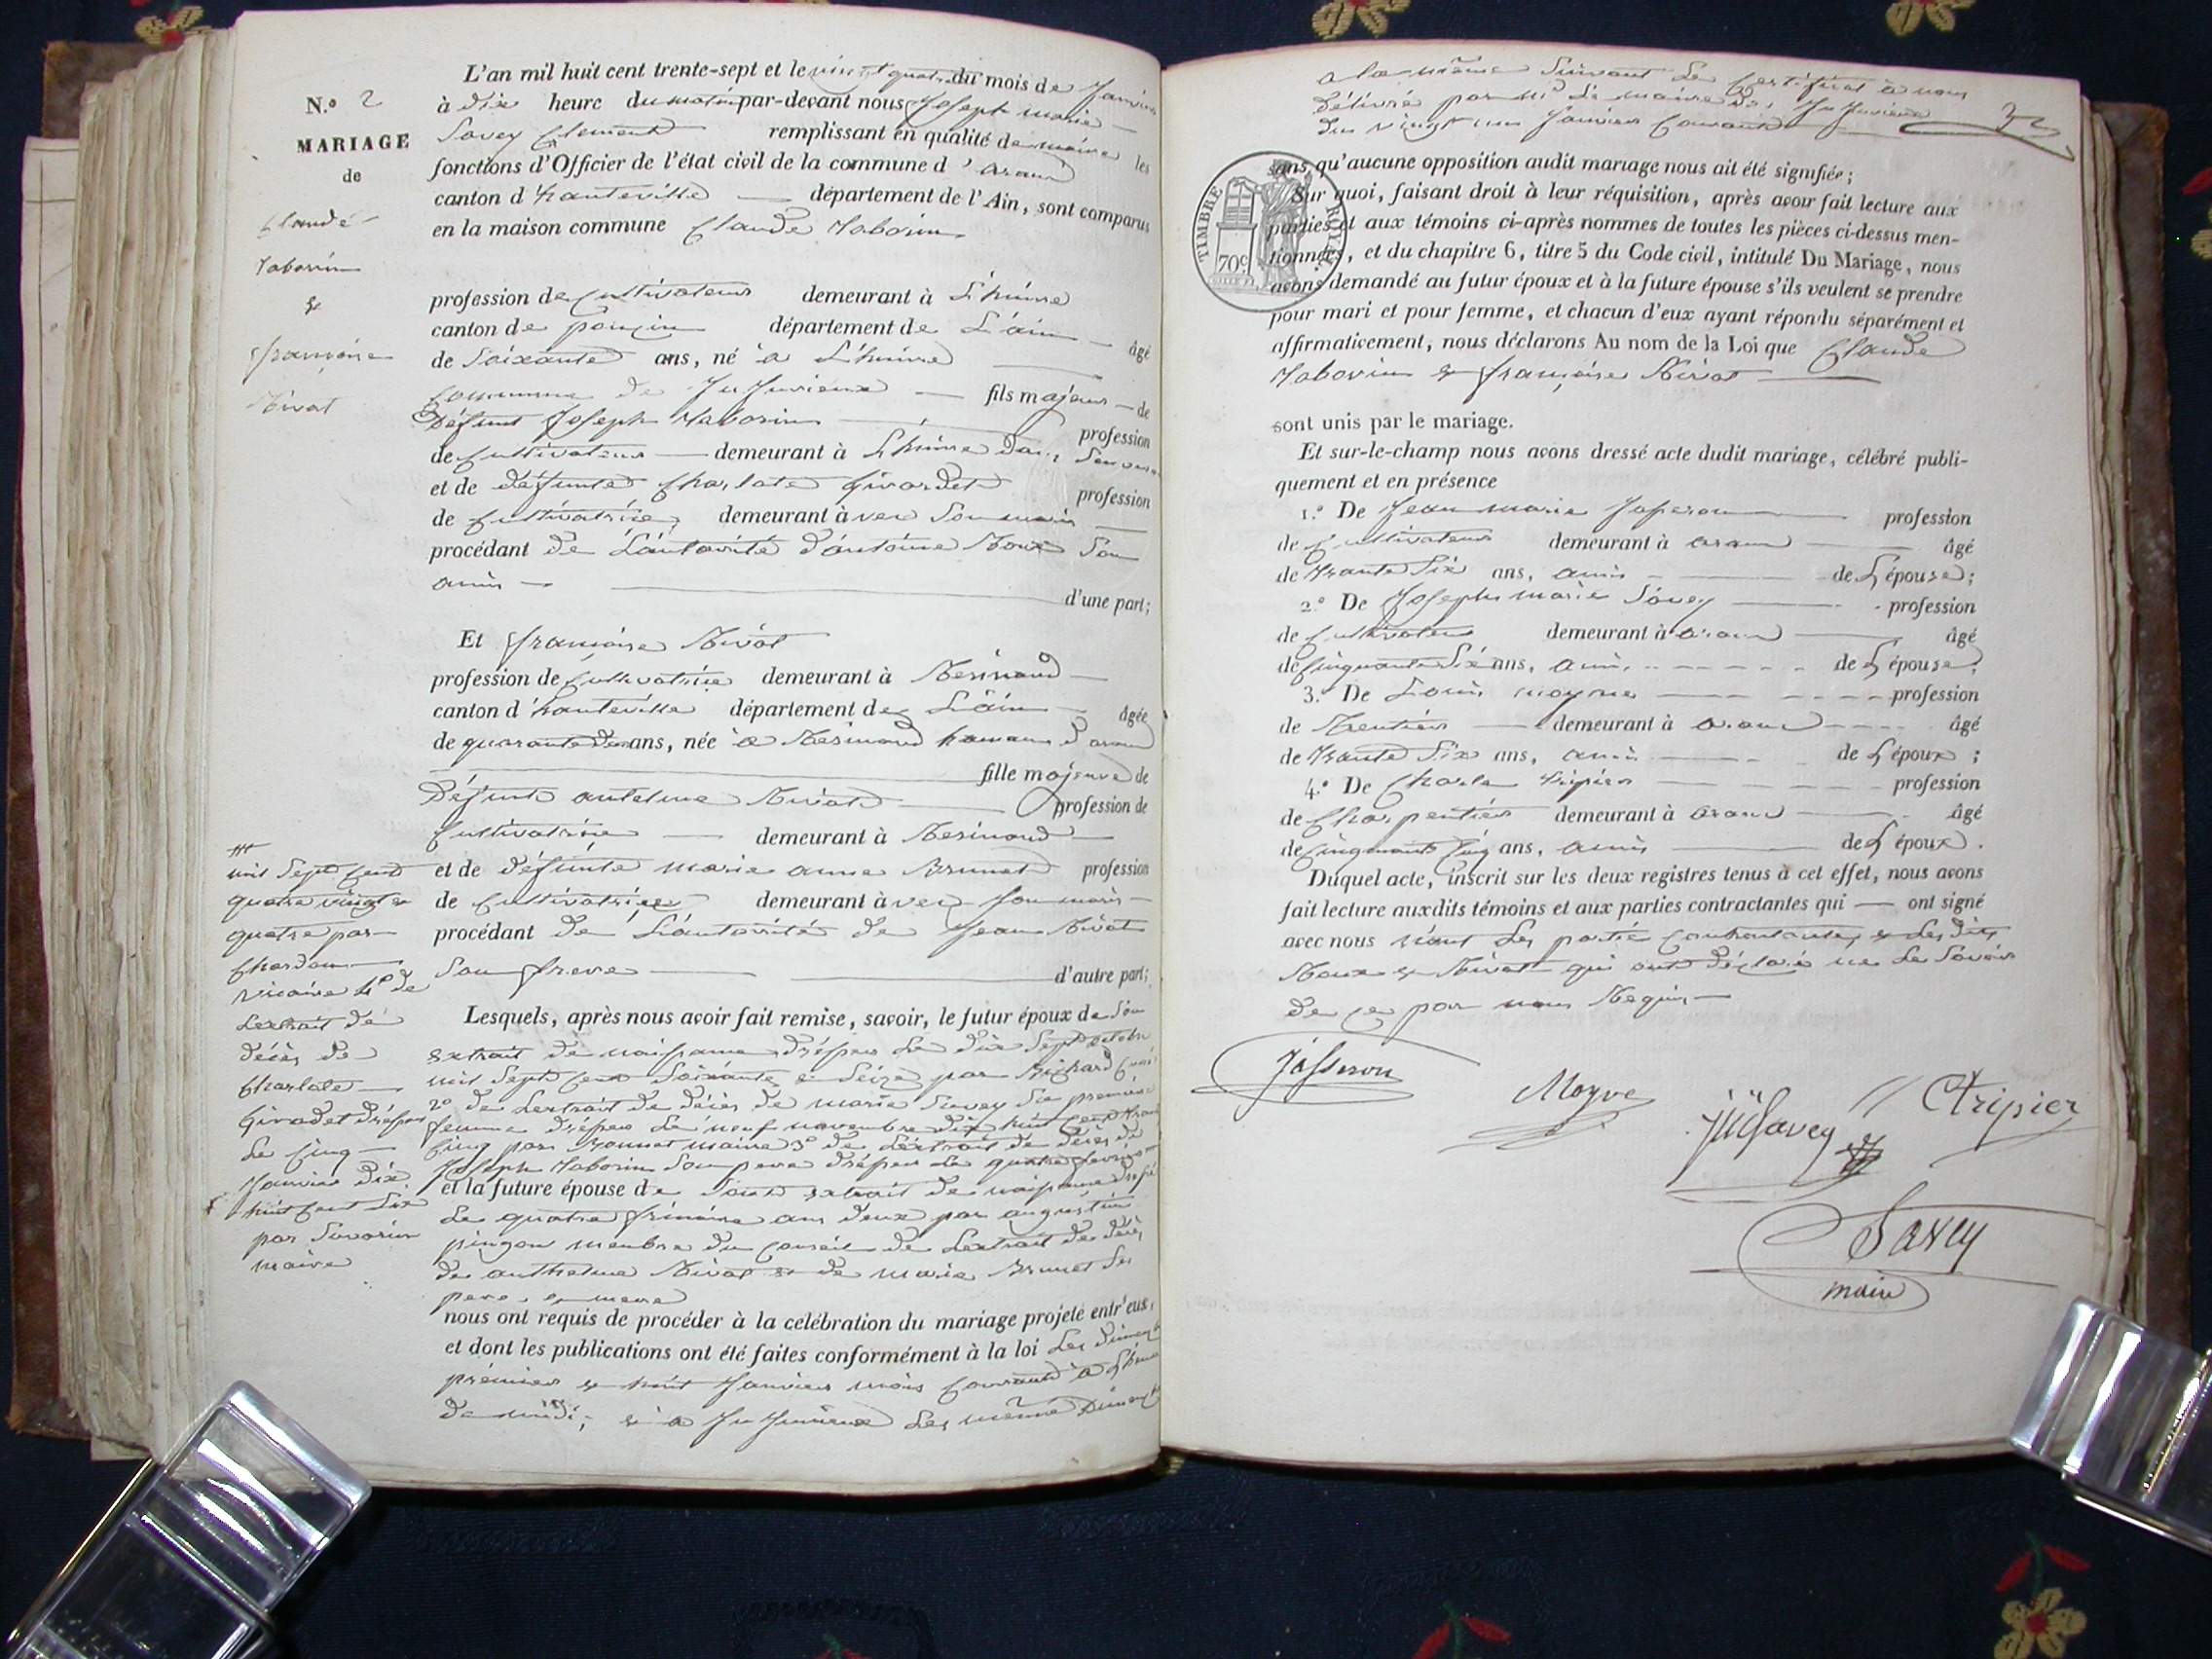 N.o 2
MARIAGE
de
Claude
Taborin
&
françoise
Nivat
L'an mil huit cent trente-sept et le vingt quatre du mois de Janvier
à dix heure du matin par-devant nous Joseph marie
Savey Clement remplissant en qualité de maire les
fonctions d'Officier de l'état civil de la commune d'aranc
canton d'hauteville département de l'Ain, sont comparus
en la maison commune Claude Taborin
profession de Cultivateur demeurant à L'huire
canton de poncin département de L'ain âgé
de Soixante ans, né à L'huire
Commune de Jujurieux fils majeur de
Défunt Joseph Taborin profession
de Cultivateur demeurant à L'huire
et de défunte Charlote Girardet profession
de Cultivatrice demeurant avec Son mari
procédant de L'autorité d'antoine Roux Son
ami
d'une part;
Et françoise Nivat
profession de Cultivatrice demeurant à Résinand
canton d'hauteville département de L'ain âgée
de quarante deux ans, née à Résinand hameau d'aranc
fille majeure de
Défunt antelme Nivat profession de
Cultivatrice demeurant à Resinand
et de défunte marie anne Brunet profession
de Cultivatrice demeurant avec Son mari
procédant de L'autorité de Jean Nivat
Son frere d'autre part;
Lesquels, après nous avoir fait remise, savoir, le futur époux de Son
extrait de naissance dréssée Le dix Sept octobre
mil Sept Cent Soixante & Seize par Richard Curé
2o de Lextrait de décès de marie Savey Sa premiere
femme dréssée Le neuf novembre dix huit Cent trente
Cinq par Bonnet maire 3o de Lextrait de décès de
Joseph Taborin Son pere dréssée Le quatre fevrier
et la future épouse de Sont extrait de naissance
Le quatre frimaire an deux par augustin
pingon membre du Conseil de Lextrait de décès
de anthelme Nivat & de marie Brunet Ses
pere & mere
nous ont requis de procéder à la célébration du mariage projeté entr'eux,
et dont les publications ont été faites conformément à la loi Les dimanches
premier & huit Janvier mois Courant à L'heure
de midi, & à Jujurieux Les même Dimanches
mil Sept Cent
quatre vingt
quatre par
Chardon
Vicaire 4o de
Lextrait de
décès de
Charlote
Giradet dréssée
Le Cinq
Janvier dix
huit Cent Six
par Savarin
maire
a la même Suivant Le Certificat à nous
délivré par Mr Le maire de Jujurieux
du vingt un Janvier Courant
TIMBRE ROYAL
70c
sans qu'aucune opposition audit mariage nous ait été signifiée;
Sur quoi, faisant droit à leur réquisition, après avoir fait lecture aux
parties et aux témoins ci-après nommes de toutes les pièces ci-dessus men-
tionnées, et du chapitre 6, titre 5 du Code civil, intitulé Du Mariage, nous
avons demandé au futur époux et à la future épouse s'ils veulent se prendre
pour mari et pour femme, et chacun d'eux ayant répondu séparément et
affirmativement, nous déclarons Au nom de la Loi que Claude
Taborin & françoise Nivat
sont unis par le mariage.
Et sur-le-champ nous avons dressé acte dudit mariage, célébré publi-
quement et en présence
1.o De Jean marie Josseron profession
de Cultivateur demeurant à aranc âgé
de trante Six ans, ami de L'épouse;
2.o De Joseph marie Savey profession
de Cultivateur demeurant à aranc âgé
de Cinquante Six ans, ami de L'épouse;
3.o De Louis moyne profession
de Rentier demeurant à aranc âgé
de trante Six ans, ami de L'époux;
4.o De Charle tripier profession
de Charpentier demeurant à aranc âgé
de Cinquante Cinq ans, ami de L'époux.
Duquel acte, inscrit sur les deux registres tenus à cet effet, nous avons
fait lecture auxdits témoins et aux parties contractantes qui ont signé
avec nous non Les partie Contractantes & Les dits
Roux & Nivat qui ont déclaré ne Le Savoir
de ce par nous Requis
Josseron
Moyne
JM Savey
Ctripier
Savey
maire